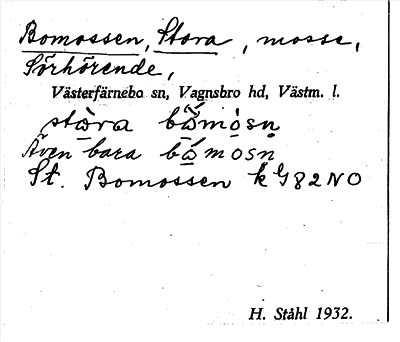 Bomossen, Stora, mosse,
Sörhörende,
Västerfärnebo sn, Vagnsbro hd, Västm. l.
stὰra bå̀mósn̥
Även bara bǻmosn̥
St. Bomossen k G82NO
H. Ståhl 1932.